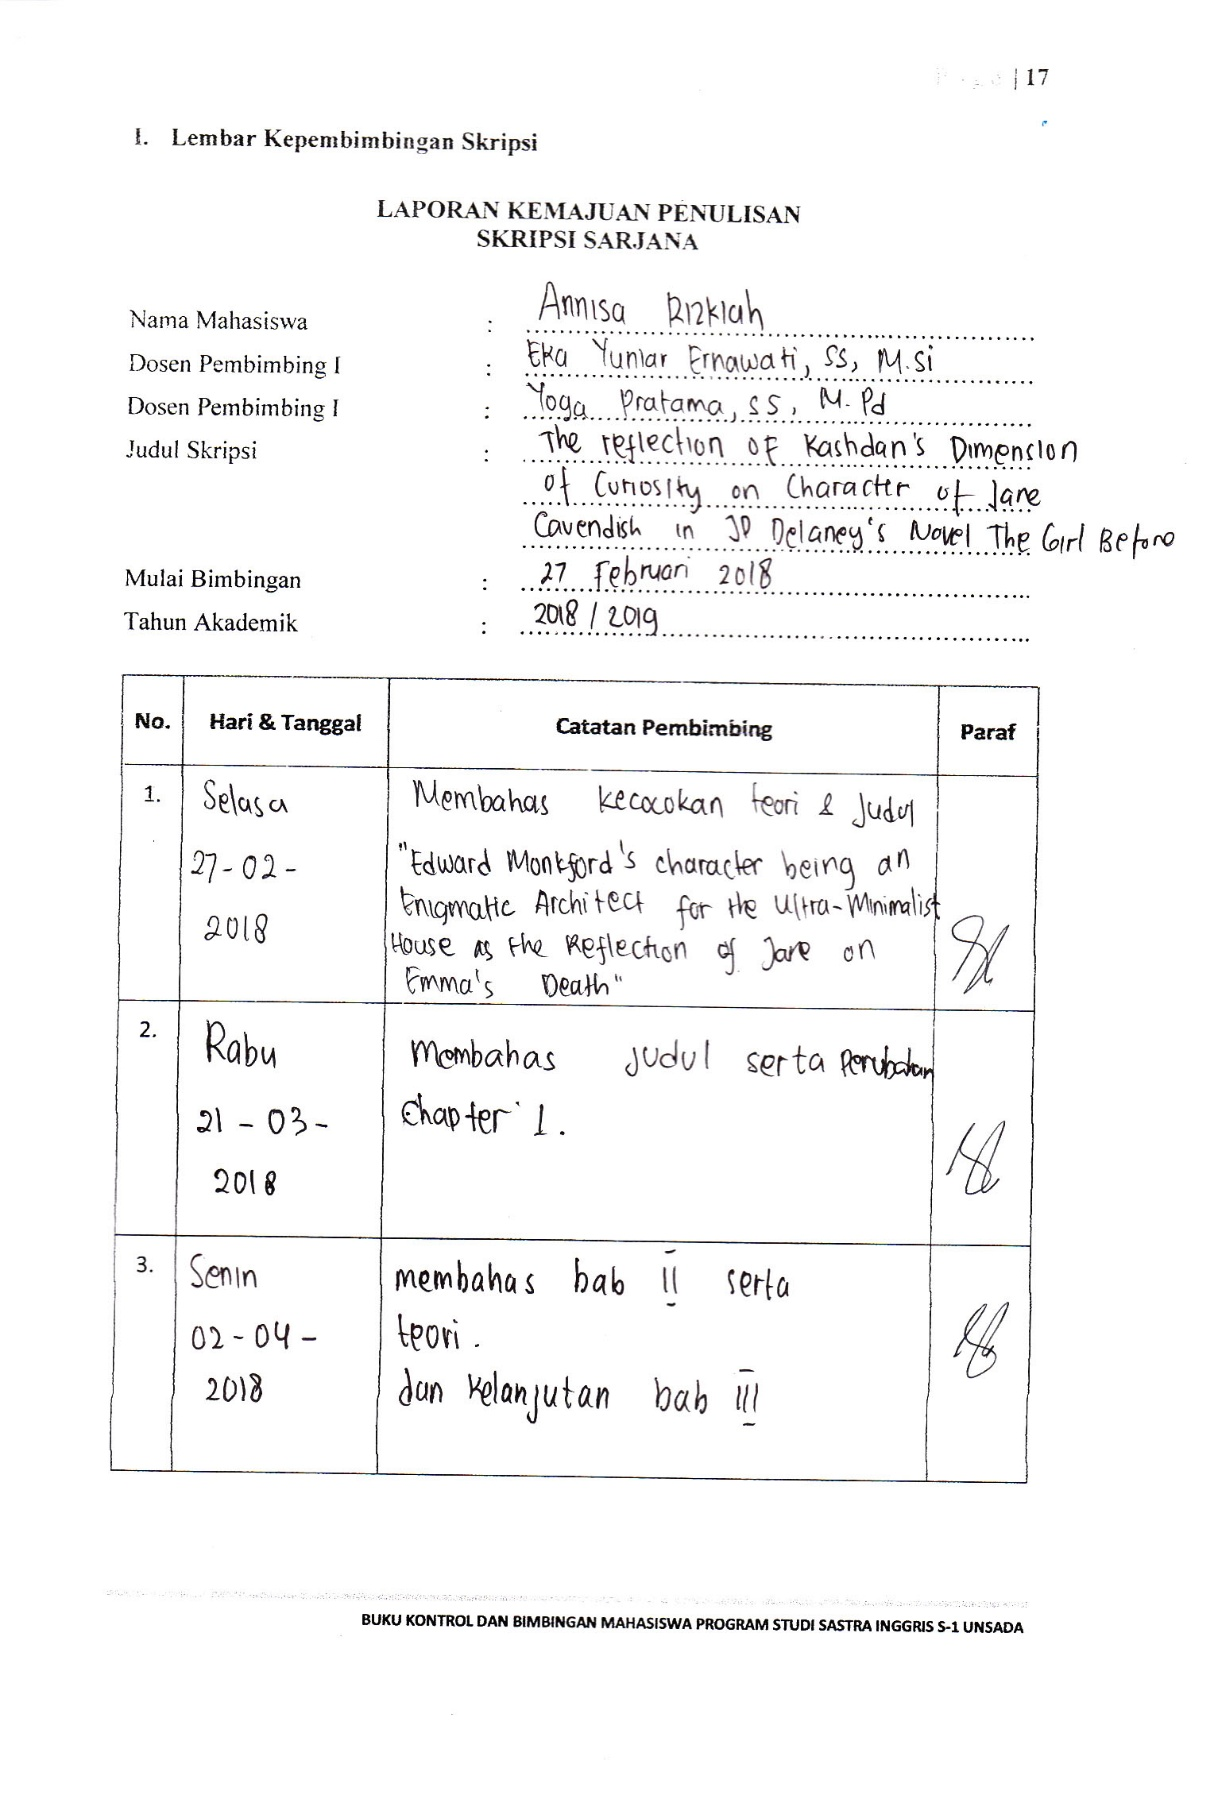 | 17
I. Lembar Kepembimbingan Skripsi
LAPORAN KEMAJUAN PENULISAN
SKRIPSI SARJANA
Nama Mahasiswa : Annisa Rizkiah
Dosen Pembimbing I : Eka Yuniar Ernawati, SS, M.Si
Dosen Pembimbing I : Yoga Pratama, SS, M.Pd
Judul Skripsi : The reflection of Kashdan's Dimension
of Curiosity on Character of Jane
Cavendish in JP Delaney's Novel The Girl Before
Mulai Bimbingan : 27 Februari 2018
Tahun Akademik : 2018 / 2019
No. Hari & Tanggal Catatan Pembimbing Paraf
1. Selasa Membahas kecocokan teori & Judul
27-02- "Edward Monkford's character being an
Enigmatic Architect for the Ultra-Minimalist
2018 House as the Reflection of Jane on
Emma's Death"
2. Rabu Membahas judul serta Perubahan
21-03- Chapter 1.
2018
3. Senin membahas bab II serta
02-04- teori.
2018 dan kelanjutan bab III
BUKU KONTROL DAN BIMBINGAN MAHASISWA PROGRAM STUDI SASTRA INGGRIS S-1 UNSADA